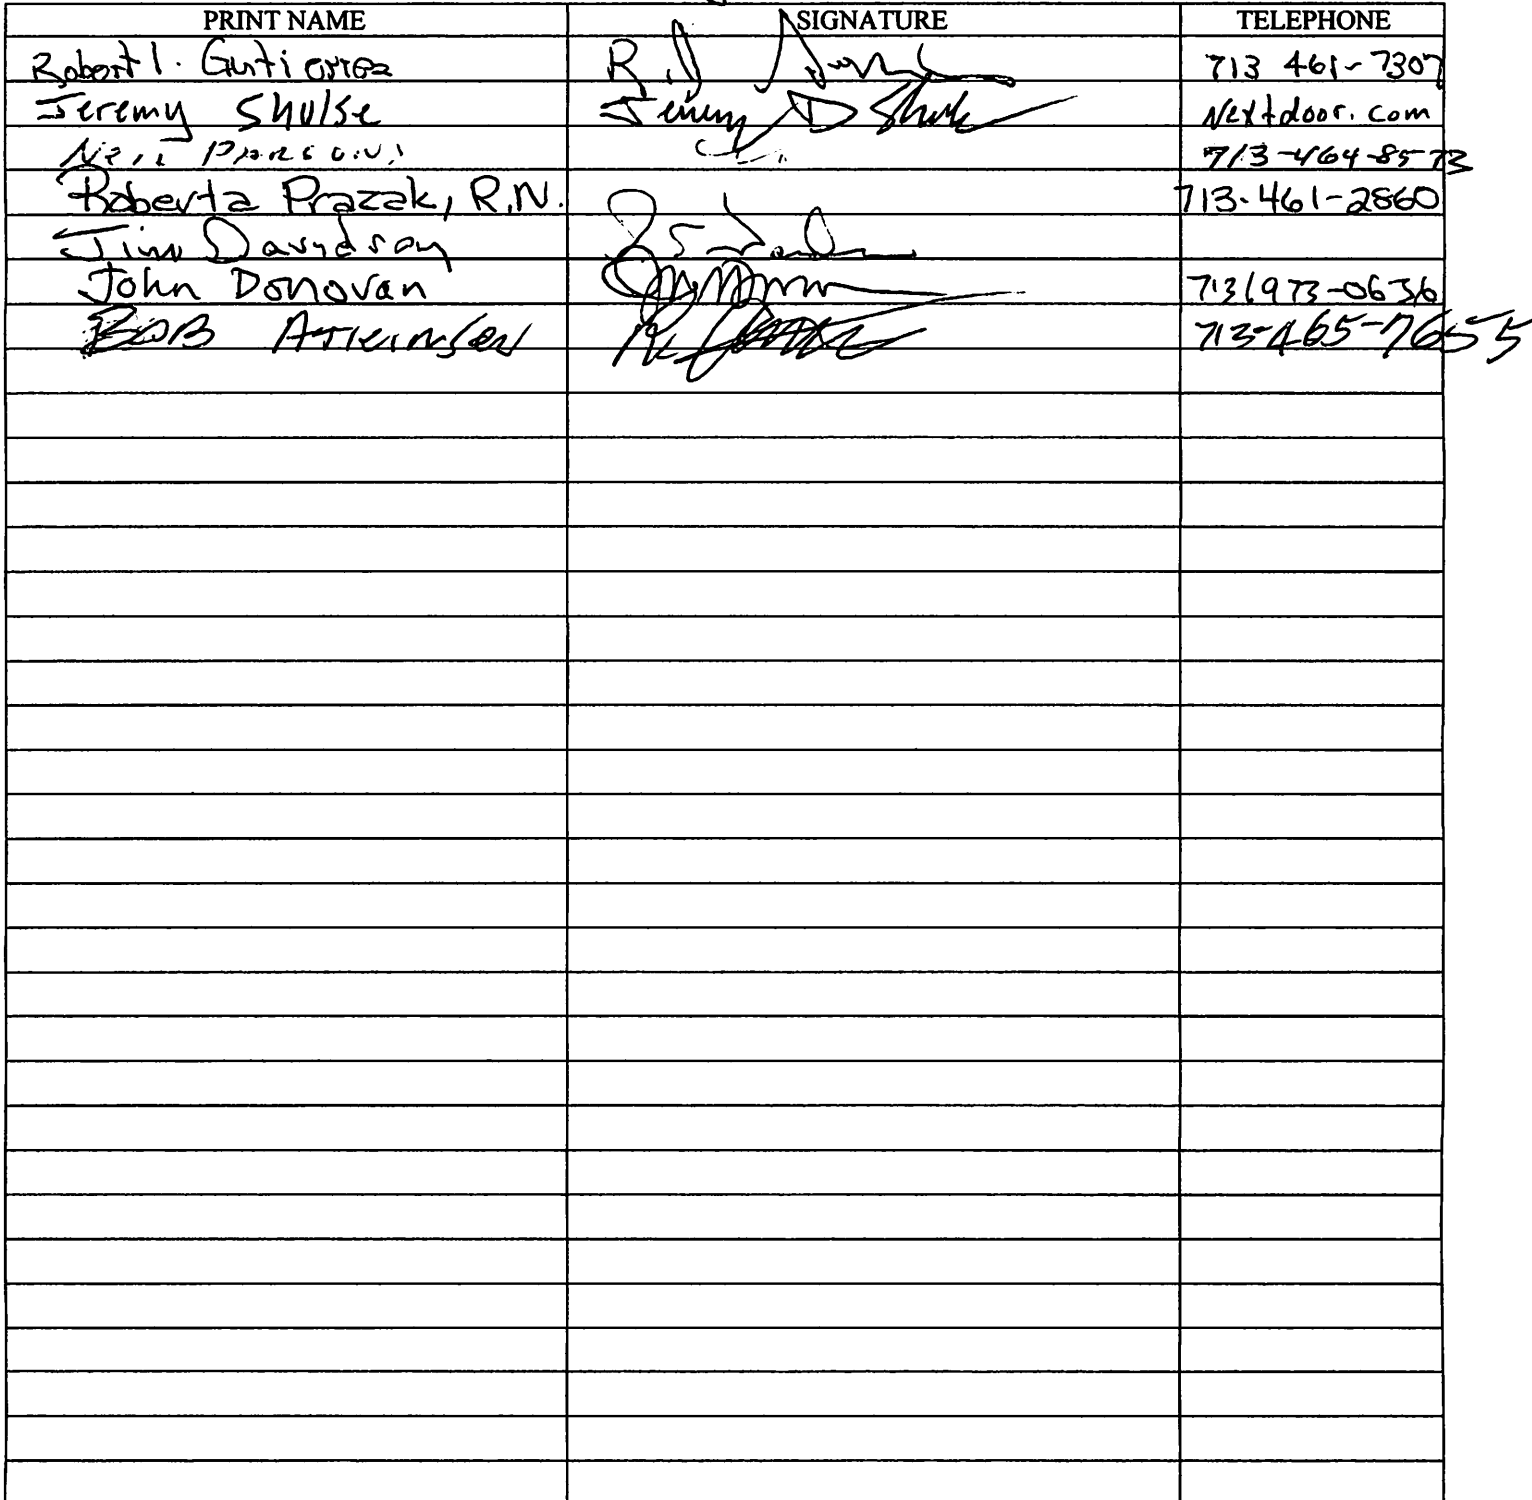 PRINT NAME SIGNATURE TELEPHONE
Robert I. Gutierrez 713 461-7307
Jeremy Shulse Jeremy D Shulse Nextdoor.com
Neil Parsons 713-464-8573
Roberta Prazak, R.N. 713-461-2860
Jim Davidson
John Donovan 713/973-0636
BOB Atkinson 713-465-7655